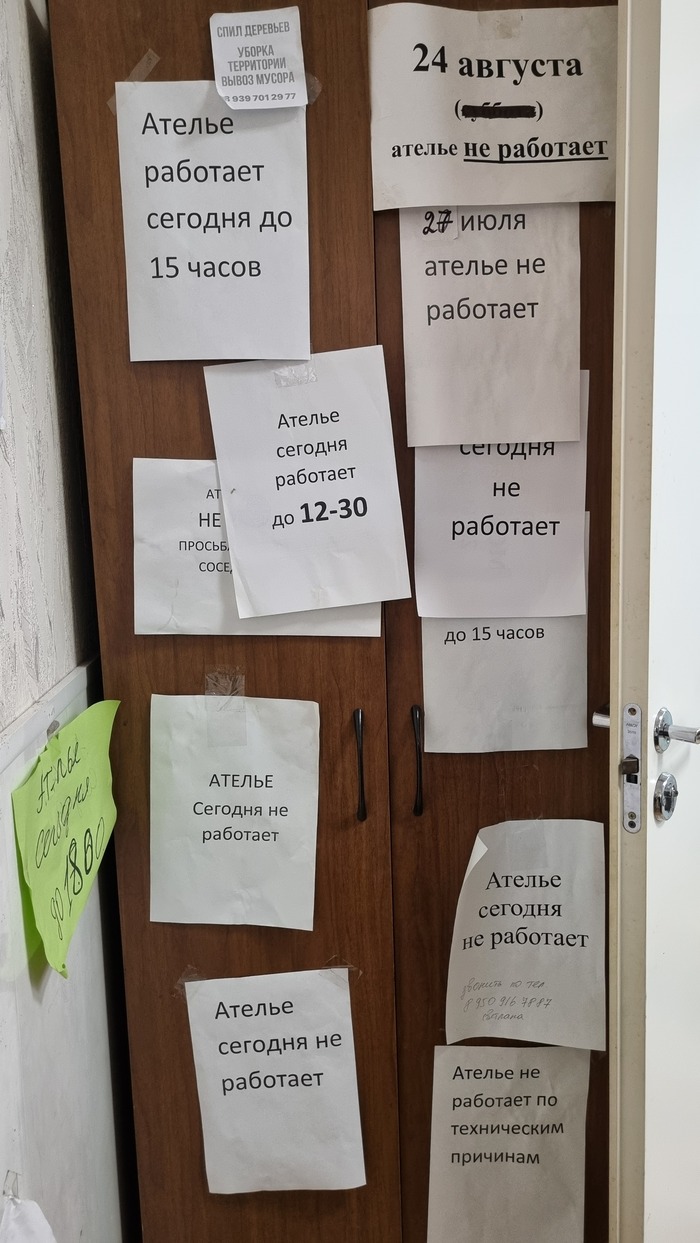 СПИЛ ДЕРЕВЬЕВ
УБОРКА
ТЕРРИТОРИИ
ВЫВОЗ МУСОРА
8 939 701 29 77
Ателье
работает
сегодня до
15 часов
24 августа
ателье не работает
27 июля
ателье не
работает
Ателье
сегодня
работает
до 12-30
АТ
НЕ
ПРОСЬБ
СОСЕД
сегодня
не
работает
до 15 часов
АТЕЛЬЕ
Сегодня не
работает
Ателье
сегодня
до 1800
Ателье
сегодня
не работает
звонить по тел.
8 950 916 7887
Светлана
Ателье
сегодня не
работает
Ателье не
работает по
техническим
причинам